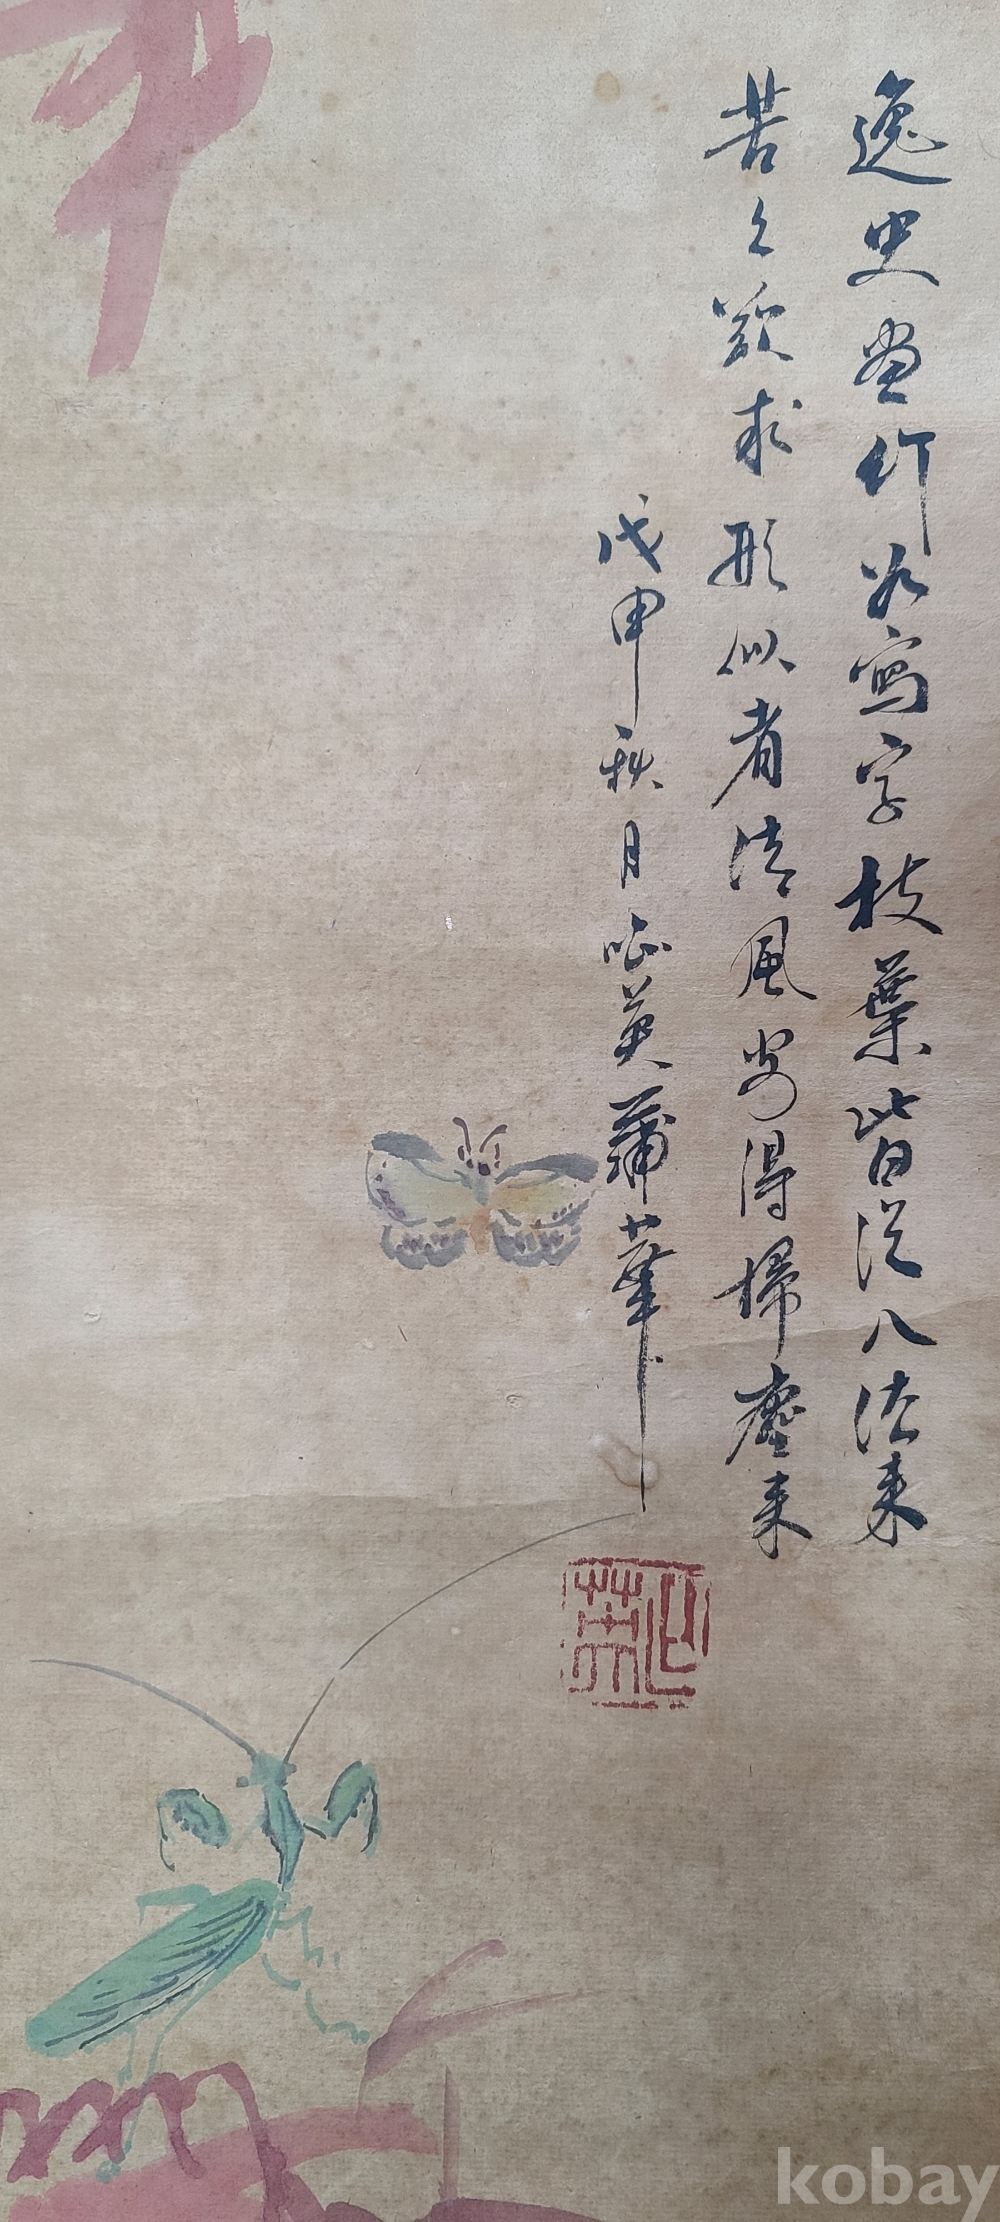 逸史畫竹如寫字枝葉皆從八法來
苦々欲求形似者清風安得掃塵来
戊申秋月 英蒲華
kobay